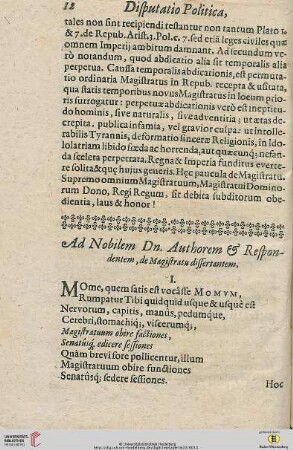 12 Disputatio Politica,
tales non sint recipiendi testantur non tantum Plato 10
& 7. de Repub. Arist. 3. Pol. c. 7. sed etiā leges civiles quæ
omnem Imperij ambitum damnant. Ad secundum ve-
rò notandum, quod abdicatio alia sit temporalis alia
perpetua. Caussa temporalis abdicationis, est permuta-
tio ordinaria Magistratus in Repub. recepta & usitata,
qua statis temporibus novus Magistratus in locum prio-
ris surrogatur: perpetuæ abdicationis verò est ineptitu-
do hominis, sive naturalis, sive adventitia; ut ætas de-
crepita, publica infamia, vel gravior culpa: ut intolle-
rabilis Tyrannis, deformatio sinceræ Religionis, in Ido-
lolatriam libido fœda ac horrenda, aut quæcunq; nefan-
da scelera perpetrata, Regna & Imperia funditus everte-
re solita & quæ hujus generis. Hęc paucula de Magistratu.
Supremo omnium Magistratuum, Magistratui Domino-
rum Dono, Regi Regum, sit debita subditorum obe-
dientia, laus & honor!
Ad Nobilem Dn. Authorem & Respon-
dentem, de Magistratu dissertantem.
I.
MOme, quem satis est vocâsse MOMVM,
Rumpatur Tibi quidquid usque & usquè est
Nervorum, capitis, manûs, pedumque,
Cerebri, stomachiq;, viscerumq;,
Magistratuum obire factiones,
Senatûsq; edicere sessiones
Quàm brevi fore pollicentur, illum
Magistratuum obire functiones
Senatûsq; sedere sessiones.
Hoc
UNIVERSITÄTS-
BIBLIOTHEK
HEIDELBERG
© Universitätsbibliothek Heidelberg
Baden-Württemberg